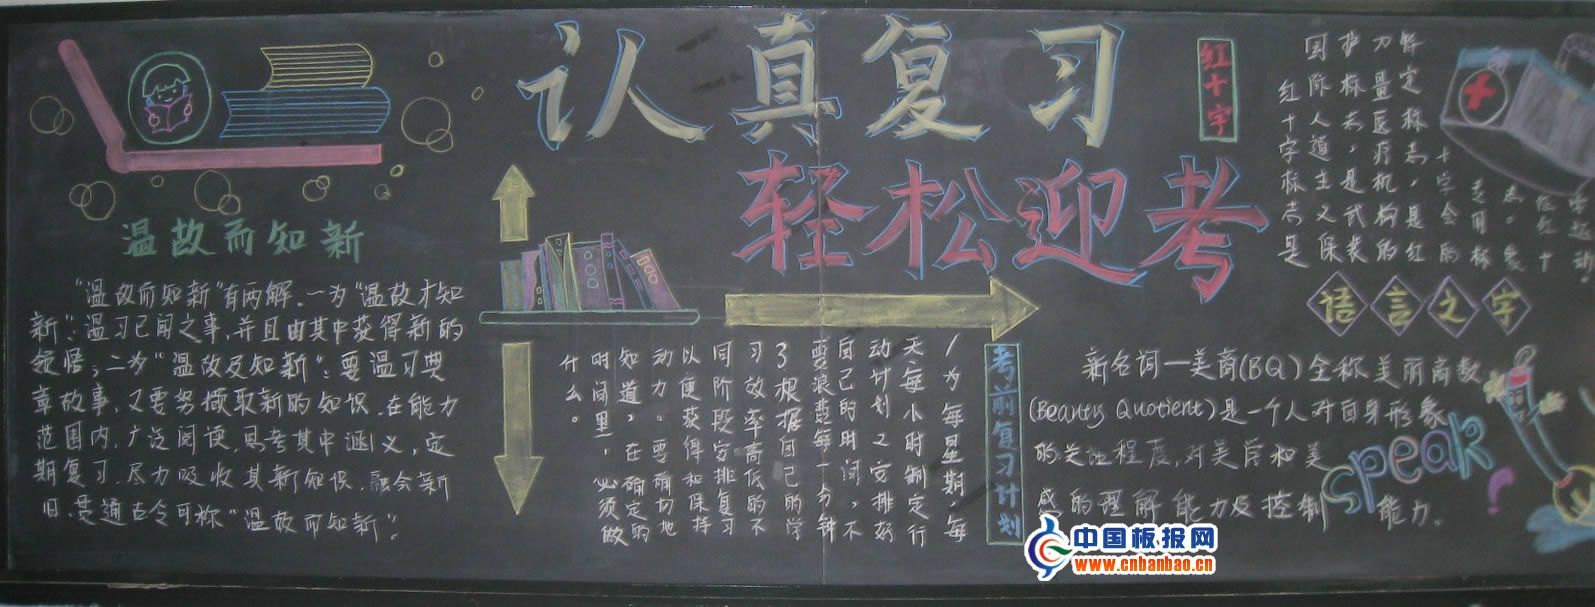 认真复习
轻松迎考
温故而知新
"温故而知新"有两解。一为"温故才知
新":温习已闻之事,并且由其中获得新的
领悟;二为"温故及知新":要温习典
章故事,又要努撷取新的知识。在能力
范围内,广泛阅读,思考其中涵义,定
期复习,尽力吸收其新知识,融会新
旧,贯通古今可称"温故而知新"。
考前复习计划
1为每星期,每
天每小时制定行
动计划2安排好
自己的时间,不
要浪费每一分钟
3根据自己的学
习效率高低的不
同阶段安排复习
以便获得和保持
动力。要确切地
知道,在确定的
时间里,必须做
什么。
红十字
红十字标志是
国际人道主义保
护标志,是武装
力量医疗机构的
特定标志,是红
十字会的
专用标
语言之字
新名词一美商(BQ)全称美丽商数
(Beauty Quotient)是一个人对自身形象
的关注程度,对美学和美
感的理解能力及控制 能力。
speak
?
中国板报网
www.cnbanbao.cn